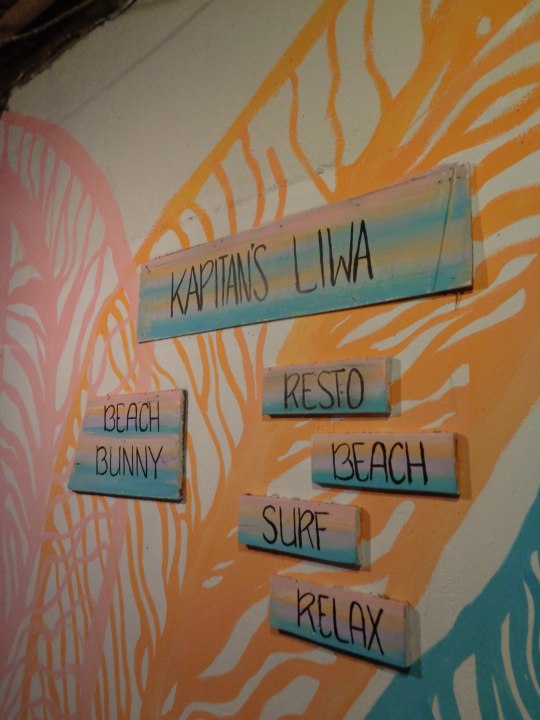 KAPITAN'S LIWA
BEACH
BUNNY
RESTO
BEACH
SURF
RELAX